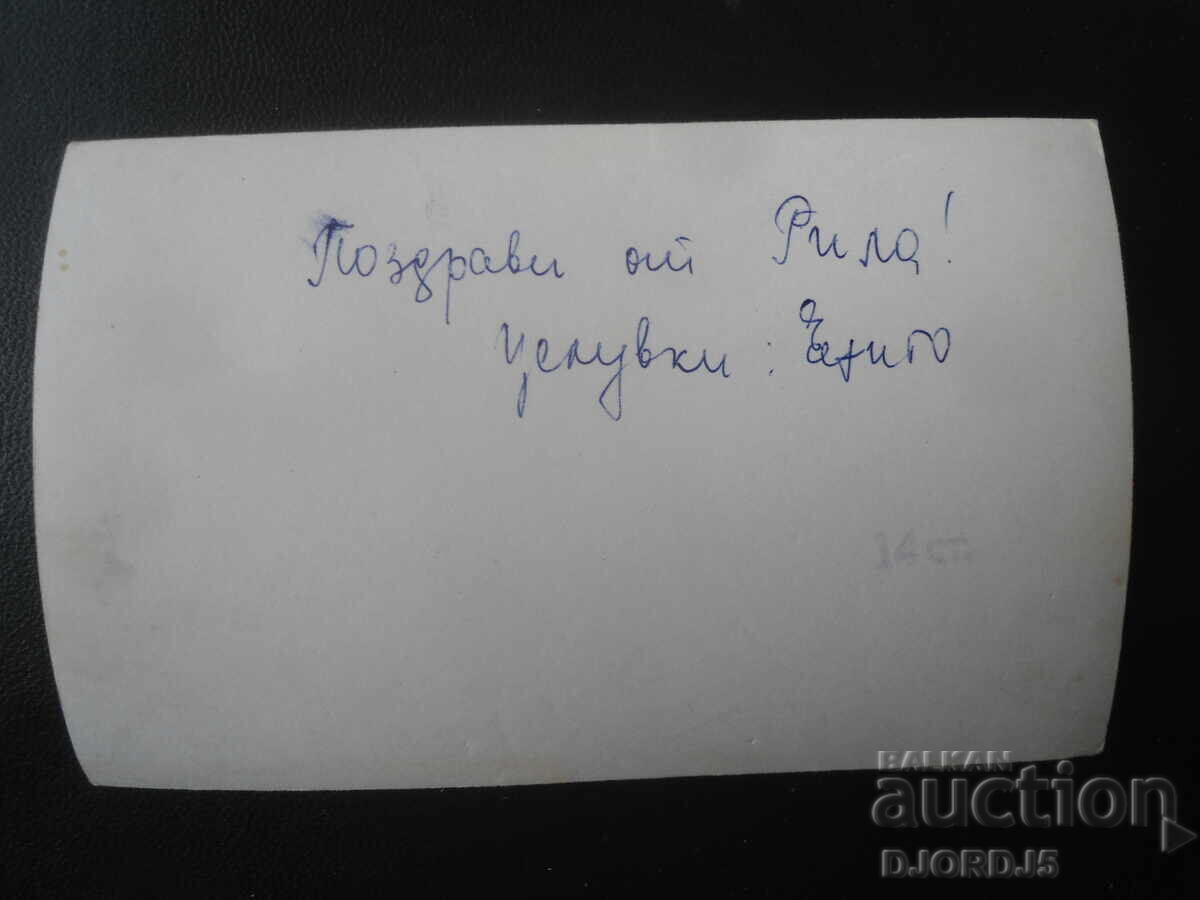 Поздрави от Рила!
Целувки:
14 ст.
BALKAN
auction
DJORDJ5